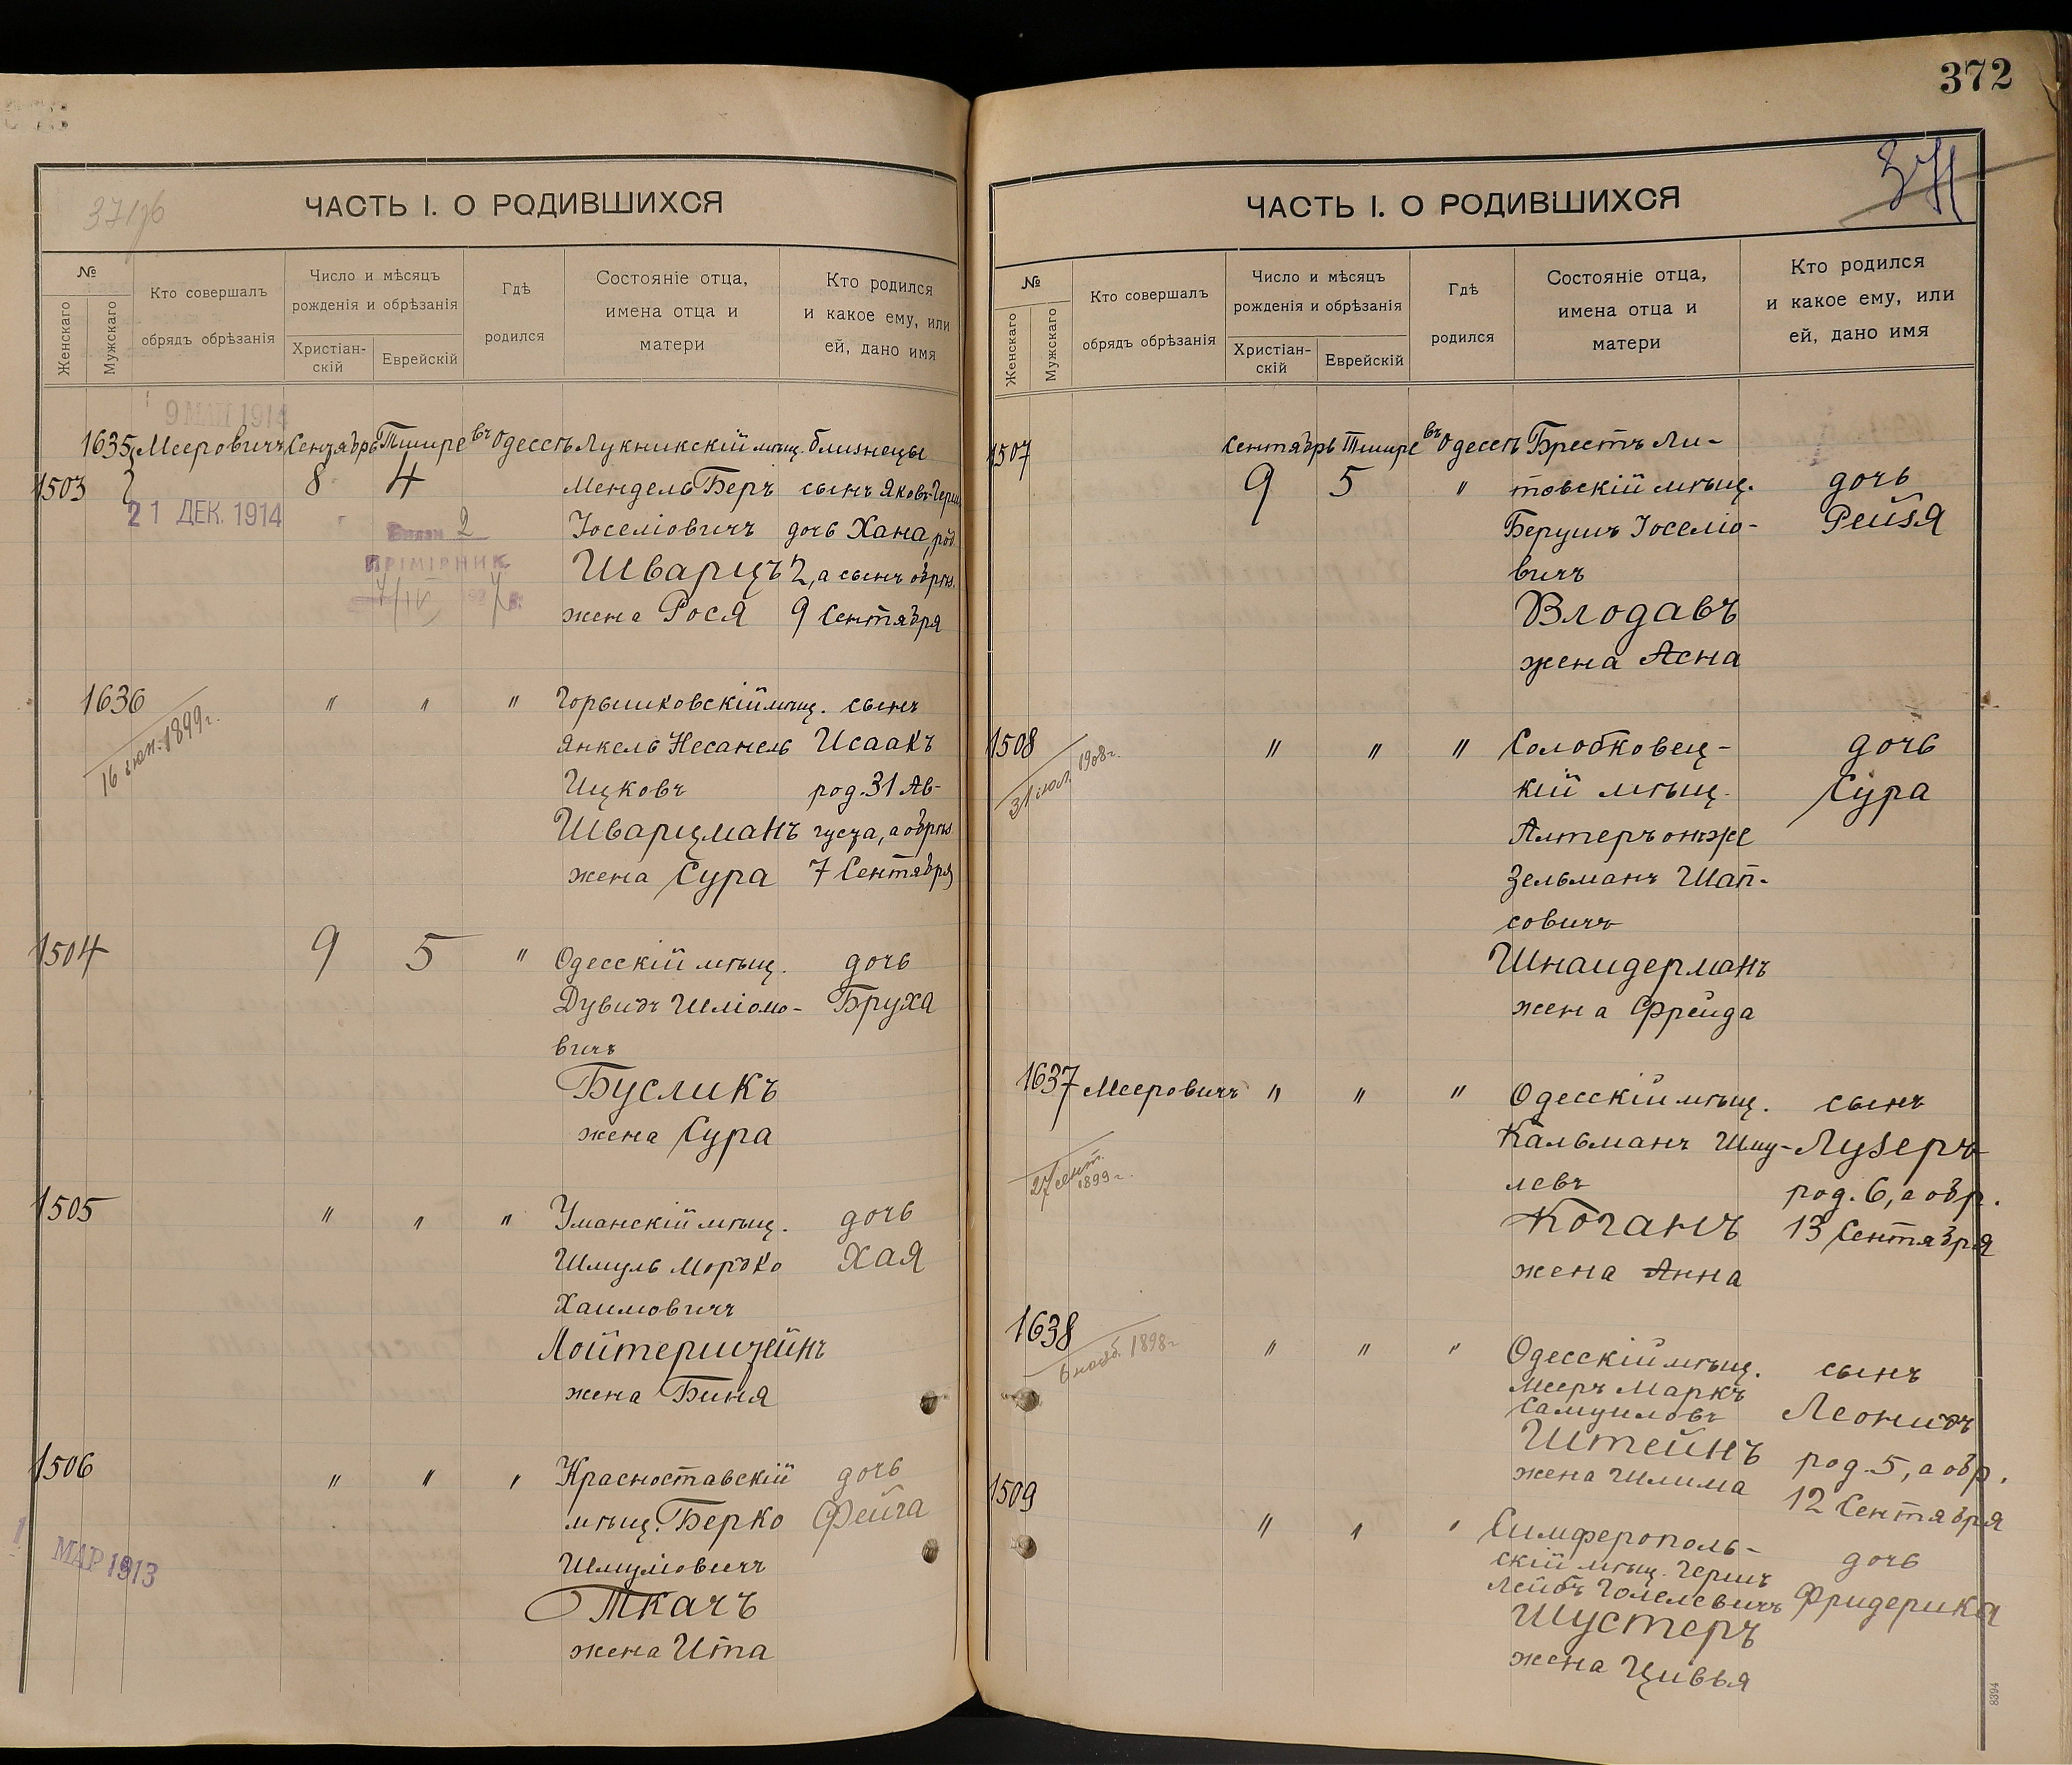 372
371об
ЧАСТЬ I. О РОДИВШИХСЯ
№
Женскаго
Мужскаго
Кто совершалъ
обрядъ обрѣзанія
Число и мѣсяцъ
рожденія и обрѣзанія
Христіан-
скій
Еврейскій
Гдѣ
родился
Состояніе отца,
имена отца и
матери
Кто родился
и какое ему, или
ей, дано имя
9 МАЙ 1914
1635 Мееровичъ Сентябрь Тишре въ Одессѣ Лукникскій мѣщ. близнецы
1503 8 4 Мендель Беръ сынъ Яковъ-Герш
21 ДЕК. 1914
Іоселіовичъ дочь Хана, род.
2
ПРІМІРНИК
Шварцъ 2, а сынъ обрѣз.
жена Рося 9 Сентября
1636 " " " Горышковскій мѣщ. сынъ
16 іюн. 1899 г.
Янкель Несанель Исаакъ
Ицковъ род. 31 Ав-
Шварцманъ густа, а обрѣз.
жена Сура 7 Сентября
1504 9 5 " Одесскій мѣщ. дочь
Дувидъ Шліомо- Бруха
вичъ
Бусликъ
жена Сура
1505 " " " Уманскій мѣщ. дочь
Шмуль Мордко Хая
Хаимовичъ
Лойтерштейнъ
жена Биня
1506 " " " Красноставскій дочь
мѣщ. Берко Фейга
1 МАР 1913
Шмуліовичъ
Ткачъ
жена Ита
371
ЧАСТЬ I. О РОДИВШИХСЯ
№
Женскаго
Мужскаго
Кто совершалъ
обрядъ обрѣзанія
Число и мѣсяцъ
рожденія и обрѣзанія
Христіан-
скій
Еврейскій
Гдѣ
родился
Состояніе отца,
имена отца и
матери
Кто родился
и какое ему, или
ей, дано имя
1507 Сентябрь Тишре въ Одессѣ Брестъ Ли-
9 5 " товскій мѣщ. дочь
Берушъ Іоселіо- Рейзя
вичъ
Влодавъ
жена Асна
1508 " " " Солобковец- дочь
31 іюл. 1908 г.
кій мѣщ. Сура
Алтеръ онъ же
Зельманъ Шап-
совичъ
Шнайдерманъ
жена Фрейда
1637 Мееровичъ " " " Одесскій мѣщ. сынъ
Кальманъ Шму- Лузеръ
27 сент. 1899 г.
левъ род. 6, а обр.
Коганъ 13 Сентября
жена Анна
1638 " " " Одесскій мѣщ. сынъ
6 нояб. 1898 г.
Мееръ Маркъ
Самуиловъ Леонидъ
Штейнъ род. 5, а обр.
жена Шлима 12 Сентября
1509 " " " Симферополь-
скій мѣщ. Гершъ дочь
Лейбъ Голелевичъ Фридерика
Шустеръ
жена Цивья
8394